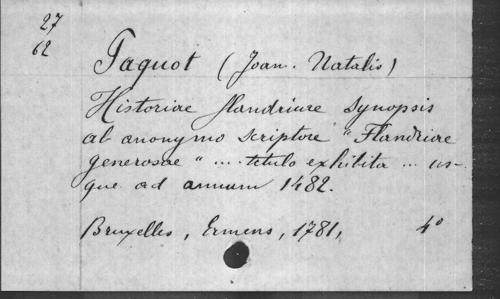 27
62
Paquot (Joan. Natalis)
Historiae flandricae synopsis
ab anonymo scriptore "Flandriae
generosae" ... titulo exhibita ... us-
que ad annum 1482.
Bruxelles, Ermens, 1781, 4°